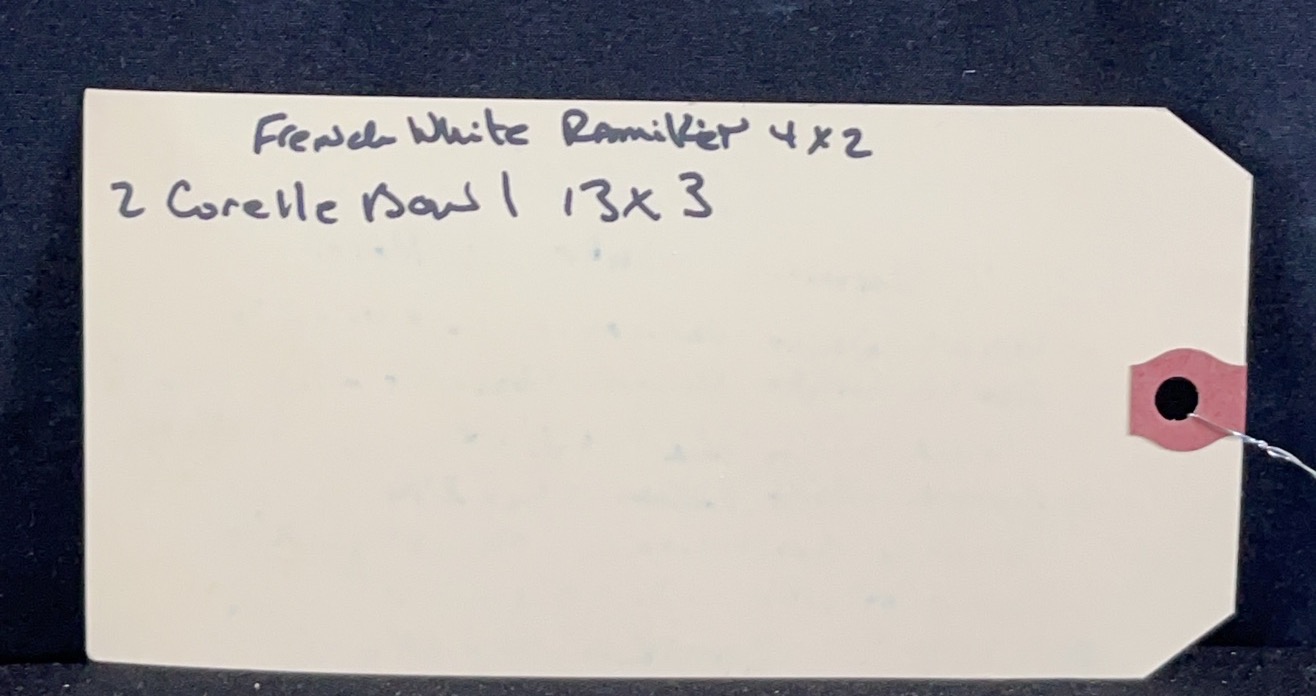 French White Ramikier 4x2
2 Corelle Bowl 13x3